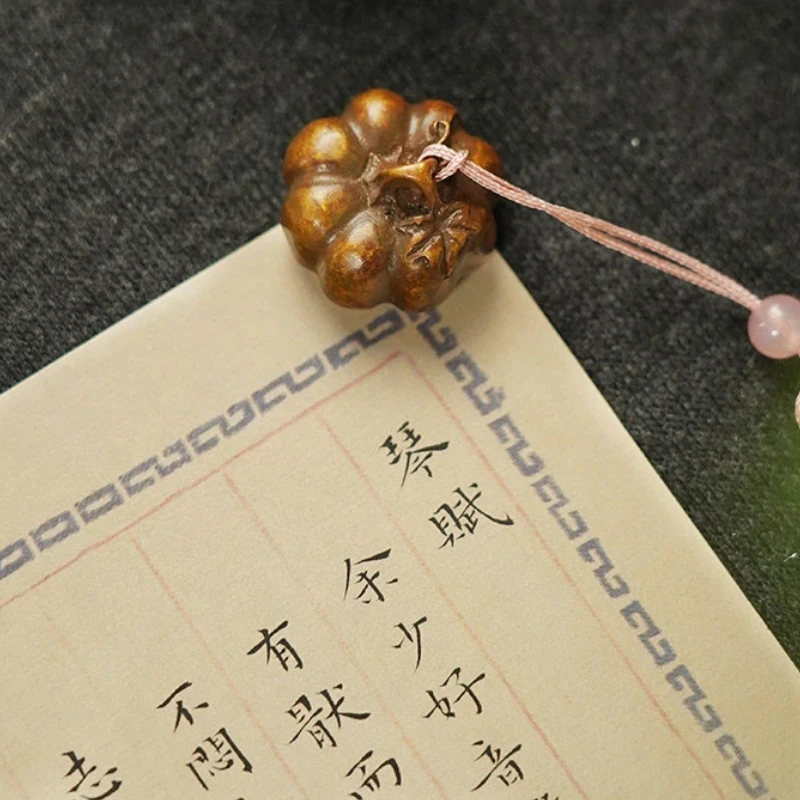 琴賦
余少好音
有猒而
不悶
志